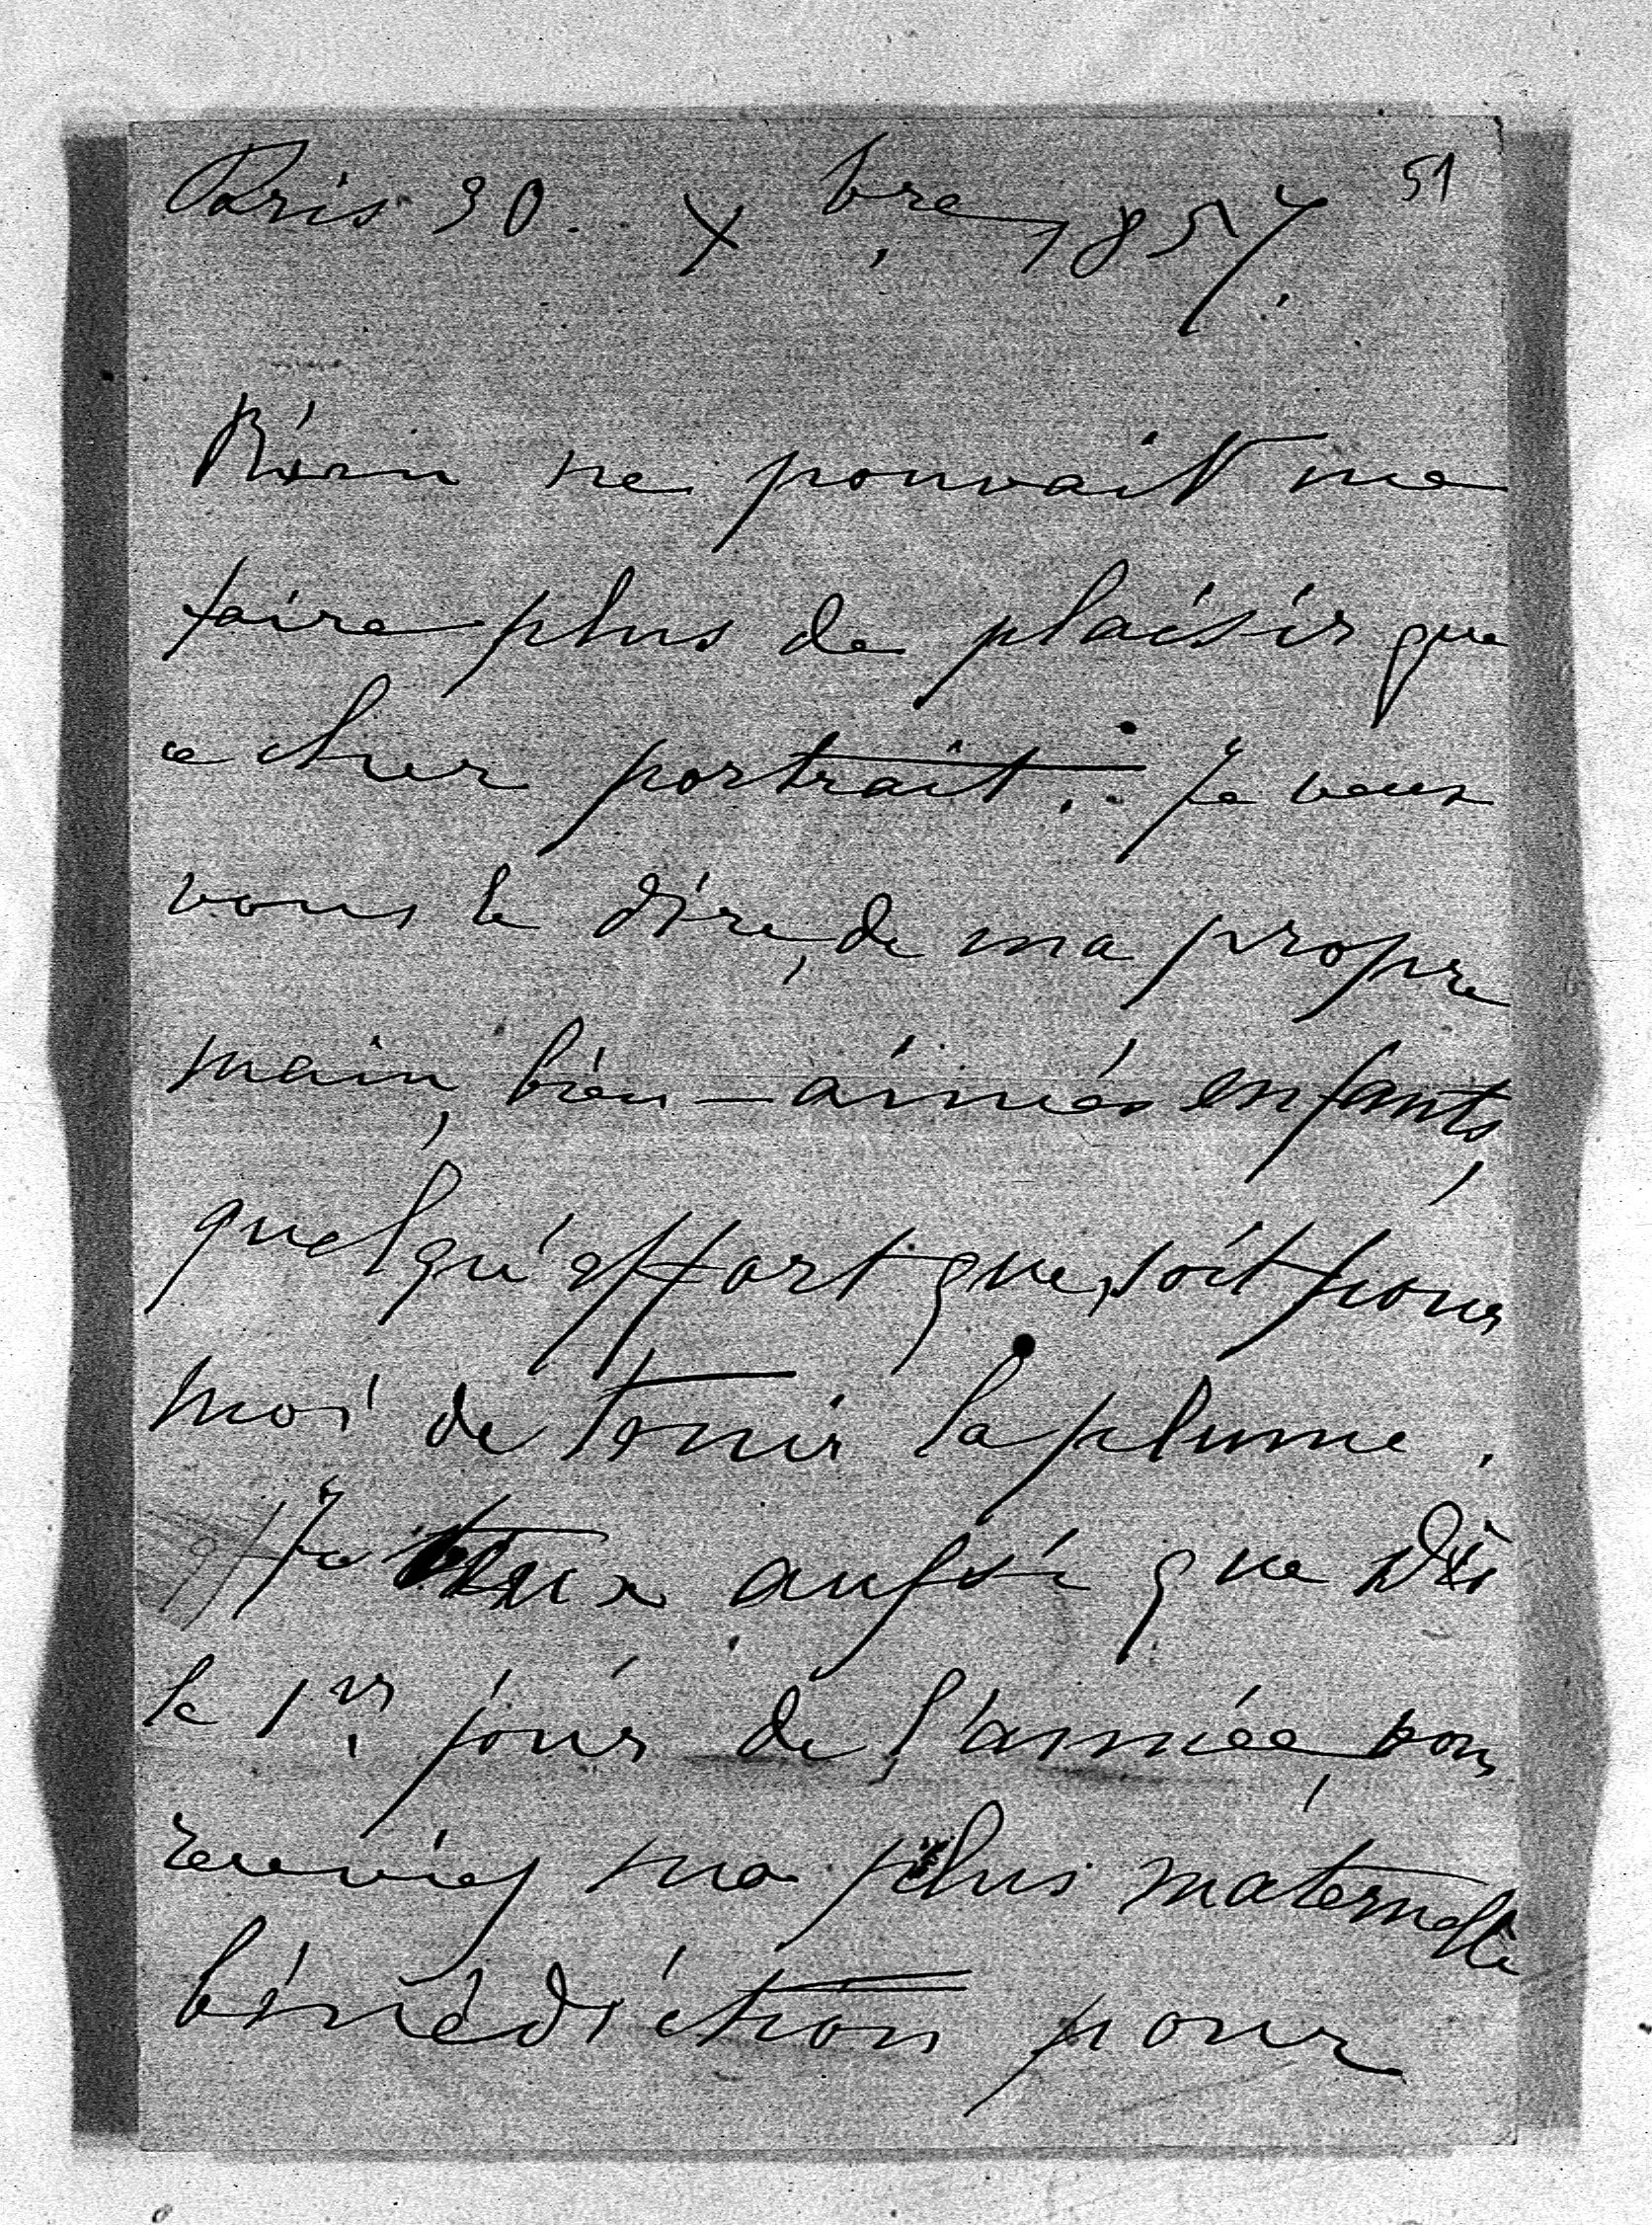 Paris 30. Xbre, 1857.
51
Rien ne pouvait me
faire plus de plaisir que
ce cher portrait. Je veux
vous le dire, de ma propre
main, bien-aimés enfants,
quelqu'effort que, soit pour
moi de tenir la plume.
Je veux aussi que dès
le 1er jour de l'année, vous
receviez ma plus maternelle
bénédiction pour